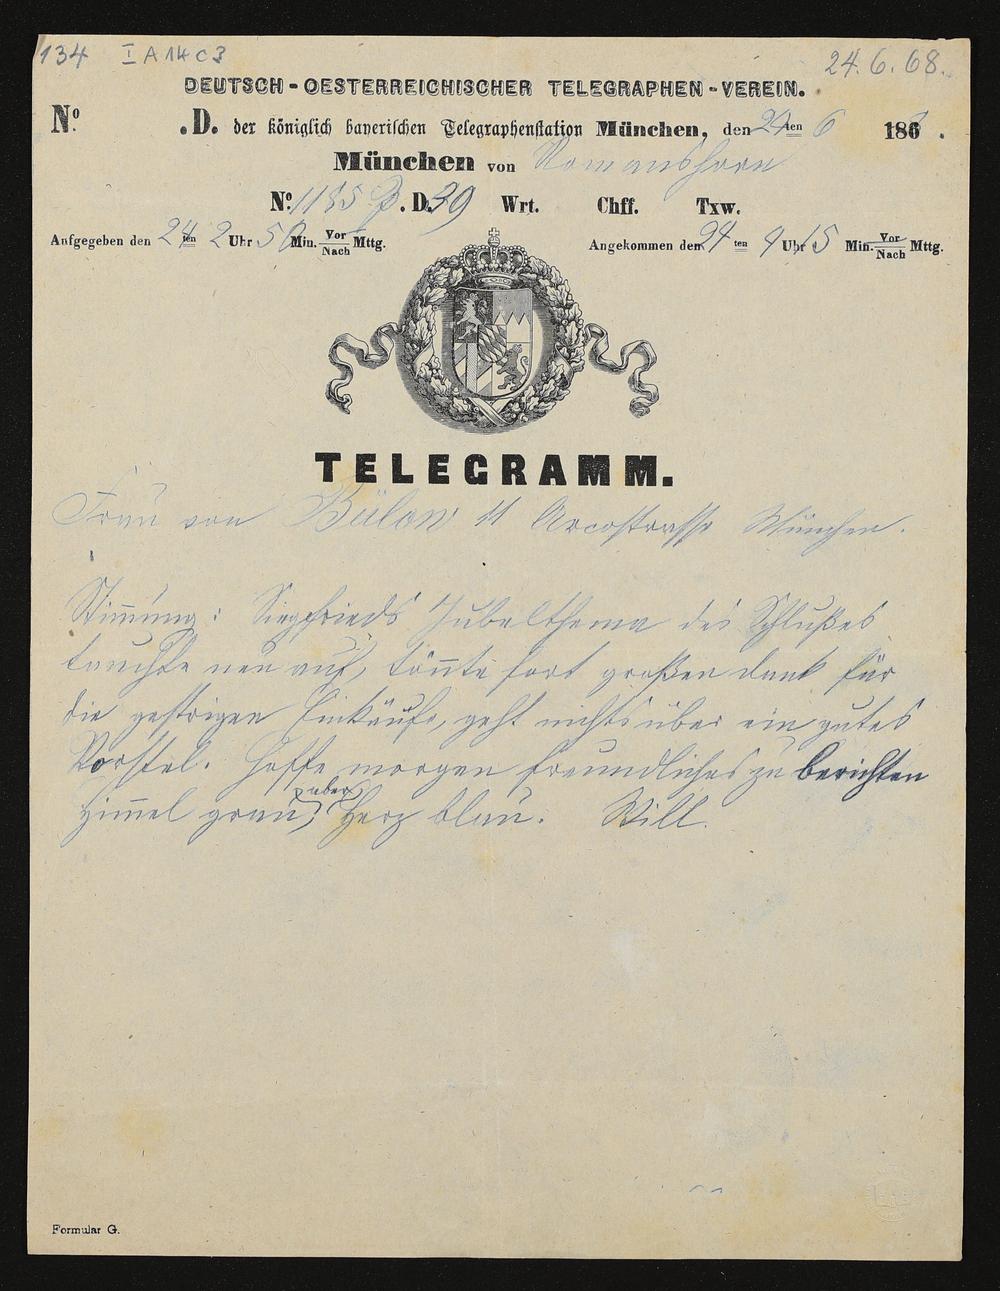 134 I A 14 C 3
24.6.68.
DEUTSCH-OESTERREICHISCHER TELEGRAPHEN-VEREIN.
Nº .D. der königlich bayerischen Telegraphenstation München, den 24ten 6 186 .
München von Romanshorn
Nº 1185 . D. 39 Wrt. Chff. Txw.
Aufgegeben den 24ten 2 Uhr 50 Min. Vor/Nach Mttg.
Angekommen den 24ten 4 Uhr 15 Min. Vor/Nach Mttg.
TELEGRAMM.
Frau von Bülow 11 Arcostrasse München.
Stimmung: Siegfrieds Jubelthema des Schlußes
tauchte neu auf, tönte fort großen dank für
die gestrigen Einkäufe, geht nichts über ein gutes
Vorstel. Hoffe morgen freundliches zu berichten
Himmel grau, aber Herz blau. Will.
Formular G.